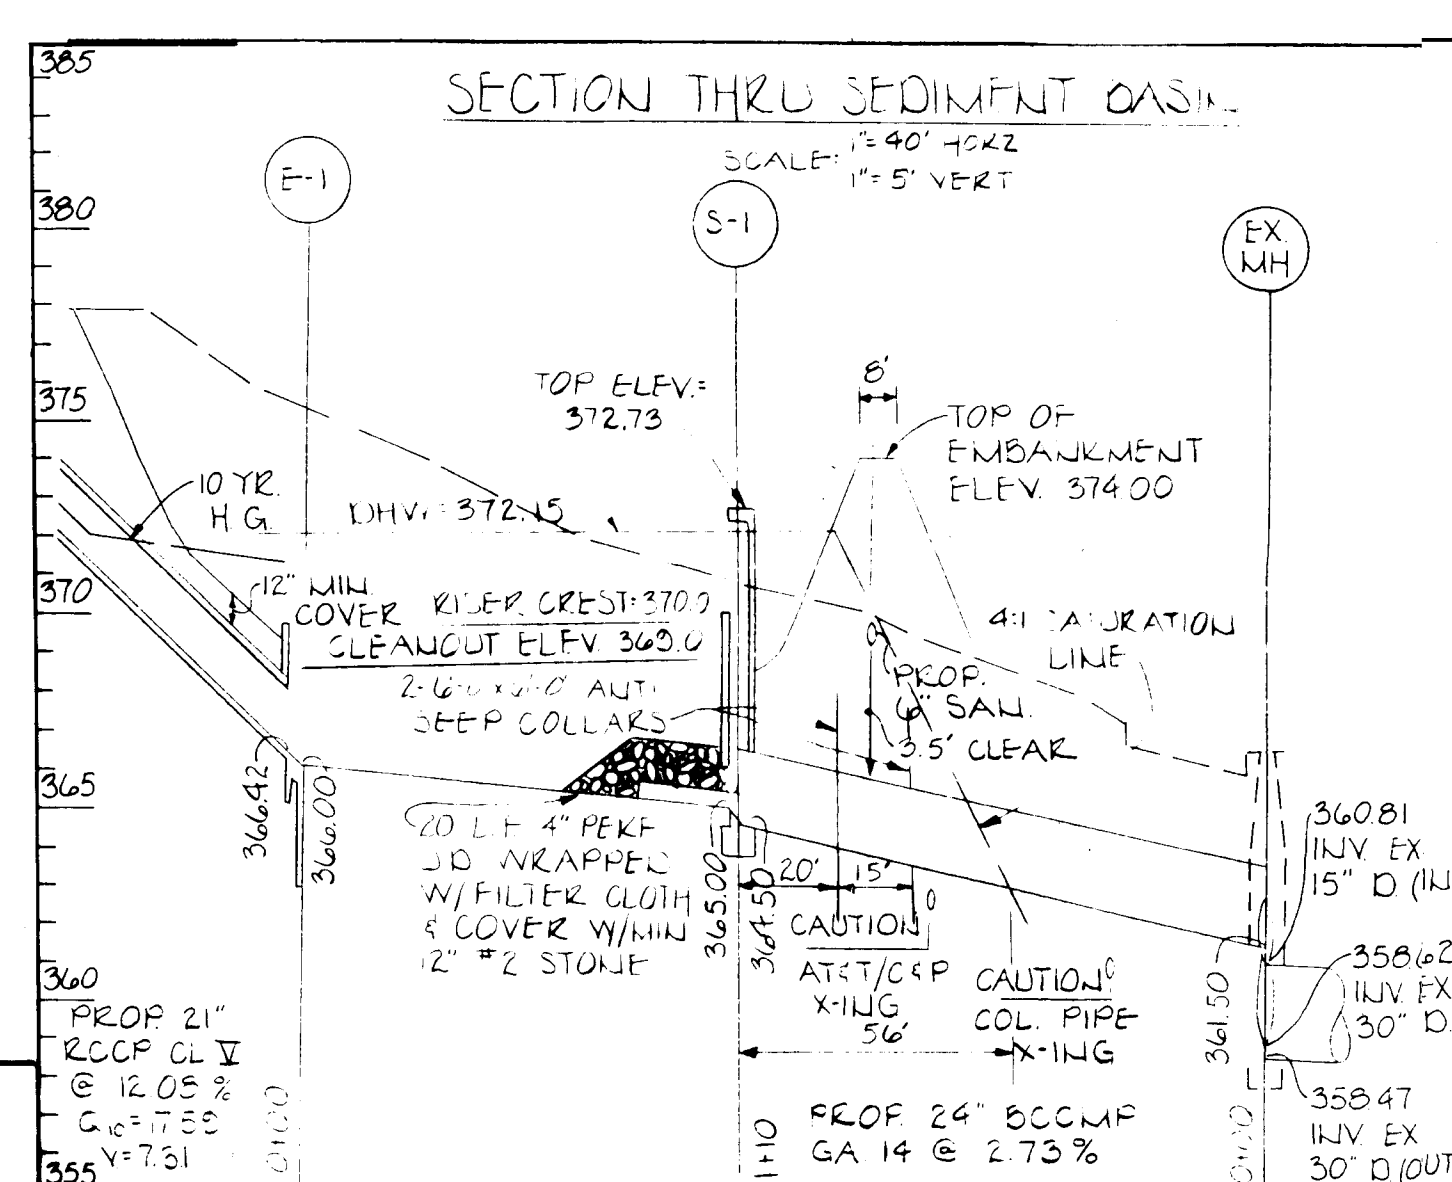 385
SECTION THRU SEDIMENT BASIN
SCALE: 1"=40' HORZ
1"=5' VERT
E-1
380
S-1
EX.
MH
8'
TOP ELEV.=
372.73
375
TOP OF
EMBANKMENT
ELEV. 374.00
10 YR.
H.G.
DHW = 372.15
12" MIN.
COVER
370
RISER CREST=370.0
CLEANOUT ELEV. 369.0
4:1 SATURATION
LINE
ANTI
SEEP COLLARS
PROP.
6" SAN.
3.5' CLEAR
365
366.42
366.00
20 L.F. 4" PERF
W/ FILTER CLOTH
& COVER W/MIN
12" #2 STONE
WRAPPED
365.00
364.50
20'
15'
CAUTION
AT&T/C&P
X-ING
CAUTION
COL. PIPE
X-ING
56'
360.81
INV. EX.
15" D. (IN
358.62
INV. EX
30" D.
361.50
358.47
INV. EX
30" D. (OUT
360
PROP. 21"
RCCP CL V
@ 12.05 %
V=7.31
355
0+00
1+10
PROP. 24" BCCMP
GA. 14 @ 2.73%